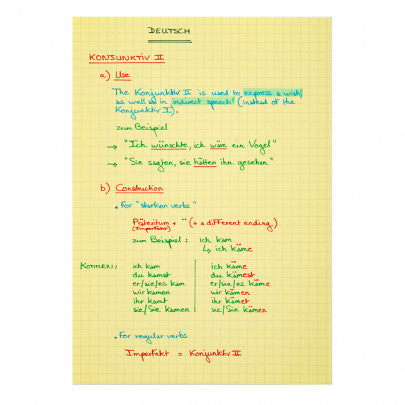 DEUTSCH
KONJUNKTIV II
a) Use
The Konjunktiv II is used to express a wish,
as well as in indirect speech (instead of the
Konjunktiv I).
zum Beispiel
→ "Ich wünschte, ich wäre ein Vogel"
→ "Sie sagten, sie hätten ihn gesehen"
b) Construction
• For "starken verbs"
Präteritum + ¨ (+ a different ending)
(Imperfekt)
zum Beispiel : ich kam
↳ ich käme
KOMMEN: ich kam | ich käme
du kamst | du kämest
er/sie/es kam | er/sie/es käme
wir kamen | wir kämen
ihr kamt | ihr kämet
sie/Sie kamen | sie/Sie kämen
• For regular verbs
Imperfekt = Konjunktiv II